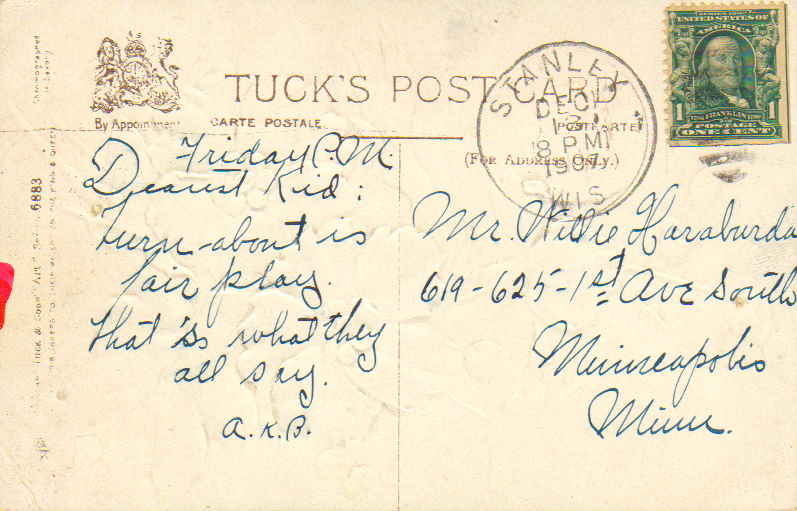 Chromographed
in Saxony
By Appointment
TUCK'S POST CARD
CARTE POSTALE
POSTKARTE
(FOR ADDRESS ONLY.)
STANLEY
DEC
8 PM
1907
WIS
SERIES 1902
UNITED STATES OF
AMERICA
1
1
FRANKLIN
ONE CENT
6883
TUCK & SONS'
Friday P.M.
Dearest Kid:
turn-about is
fair play.
that is what they
all say.
A.K.B.
Mr. Willie Haraburda
619-625-1st Ave South
Minneapolis
Minn.